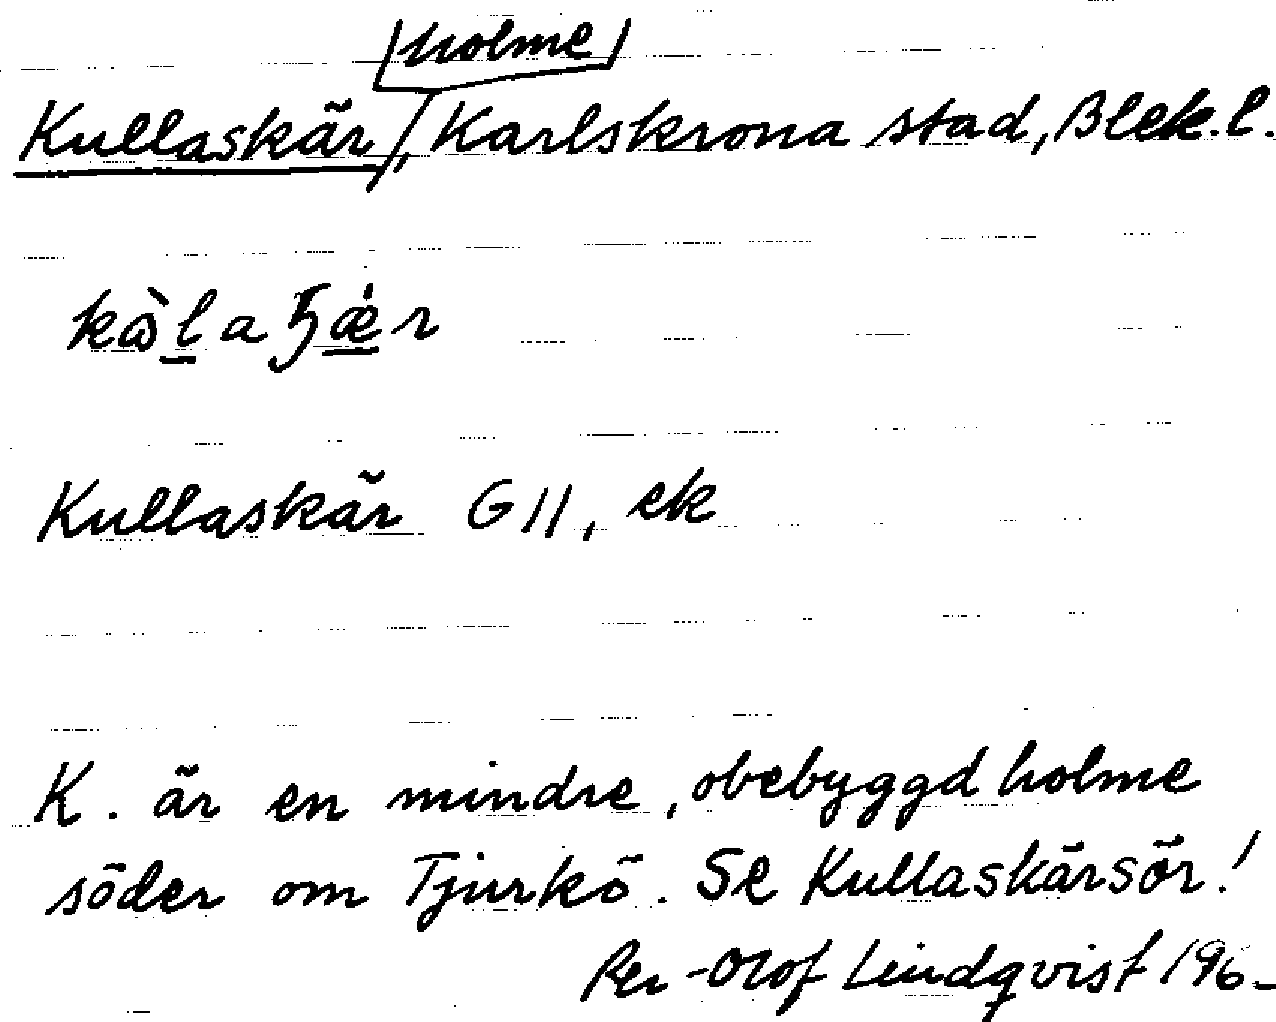 holme
Kullaskär, Karlskrona stad, Blek.l.
Kullaskär G11, ek
K. är en mindre, obebyggd holme
söder om Tjurkö. Se Kullaskärsör!
Per-Olof Lindqvist 196-